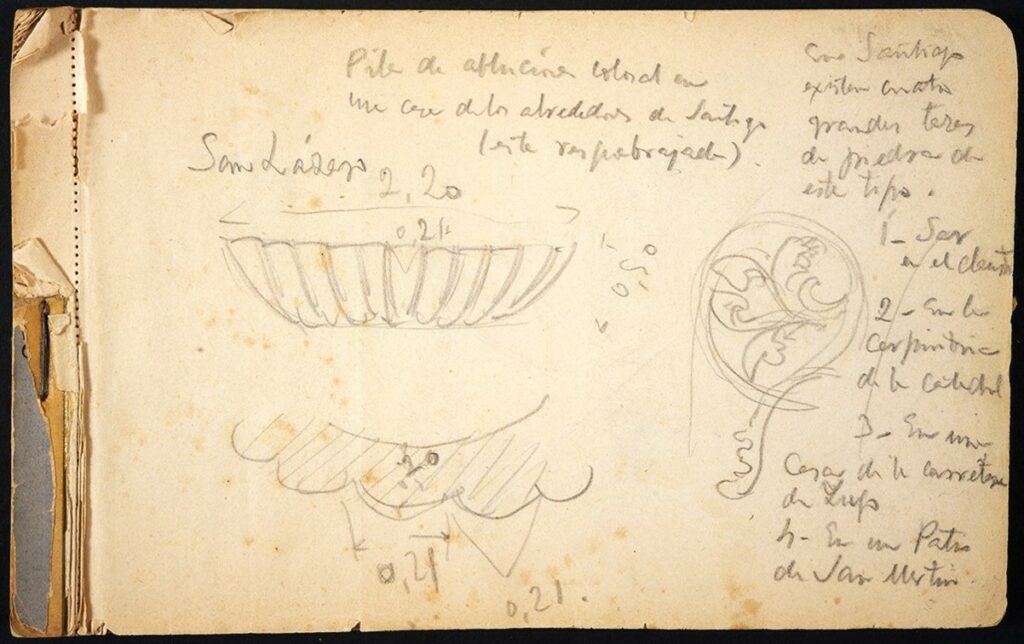 Pila de abluciones colosal en
una casa de los alrededores de Santiago
(esta resquebrajada).
San Lázaro
2,20
0,21
0,50
20
0,21
0,21.
En Santiago
existen cuatro
grandes tazas
de piedra de
este tipo.
1- Sar
en el claustro
2- En la
carpintería
de la catedral
3- En una
Casa de la carretera
de Lugo
4- En un Patio
de San Martin.